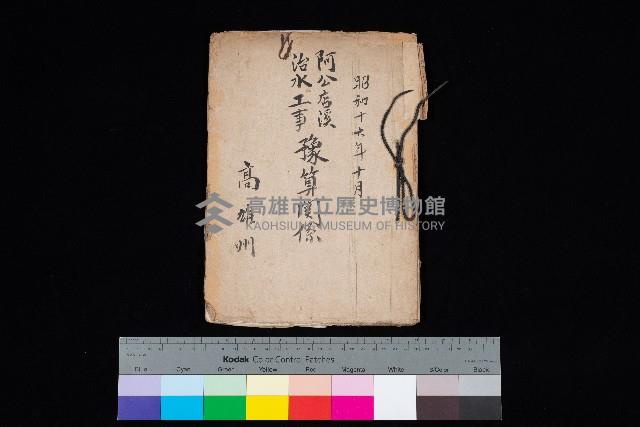 昭和十六年十月
阿公店溪
治水工事
豫算関係
高雄州
高雄市立歷史博物館
KAOHSIUNG MUSEUM OF HISTORY
Kodak Color Control Patches
Blue Cyan Green Yellow Red Magenta White 3/Color Black